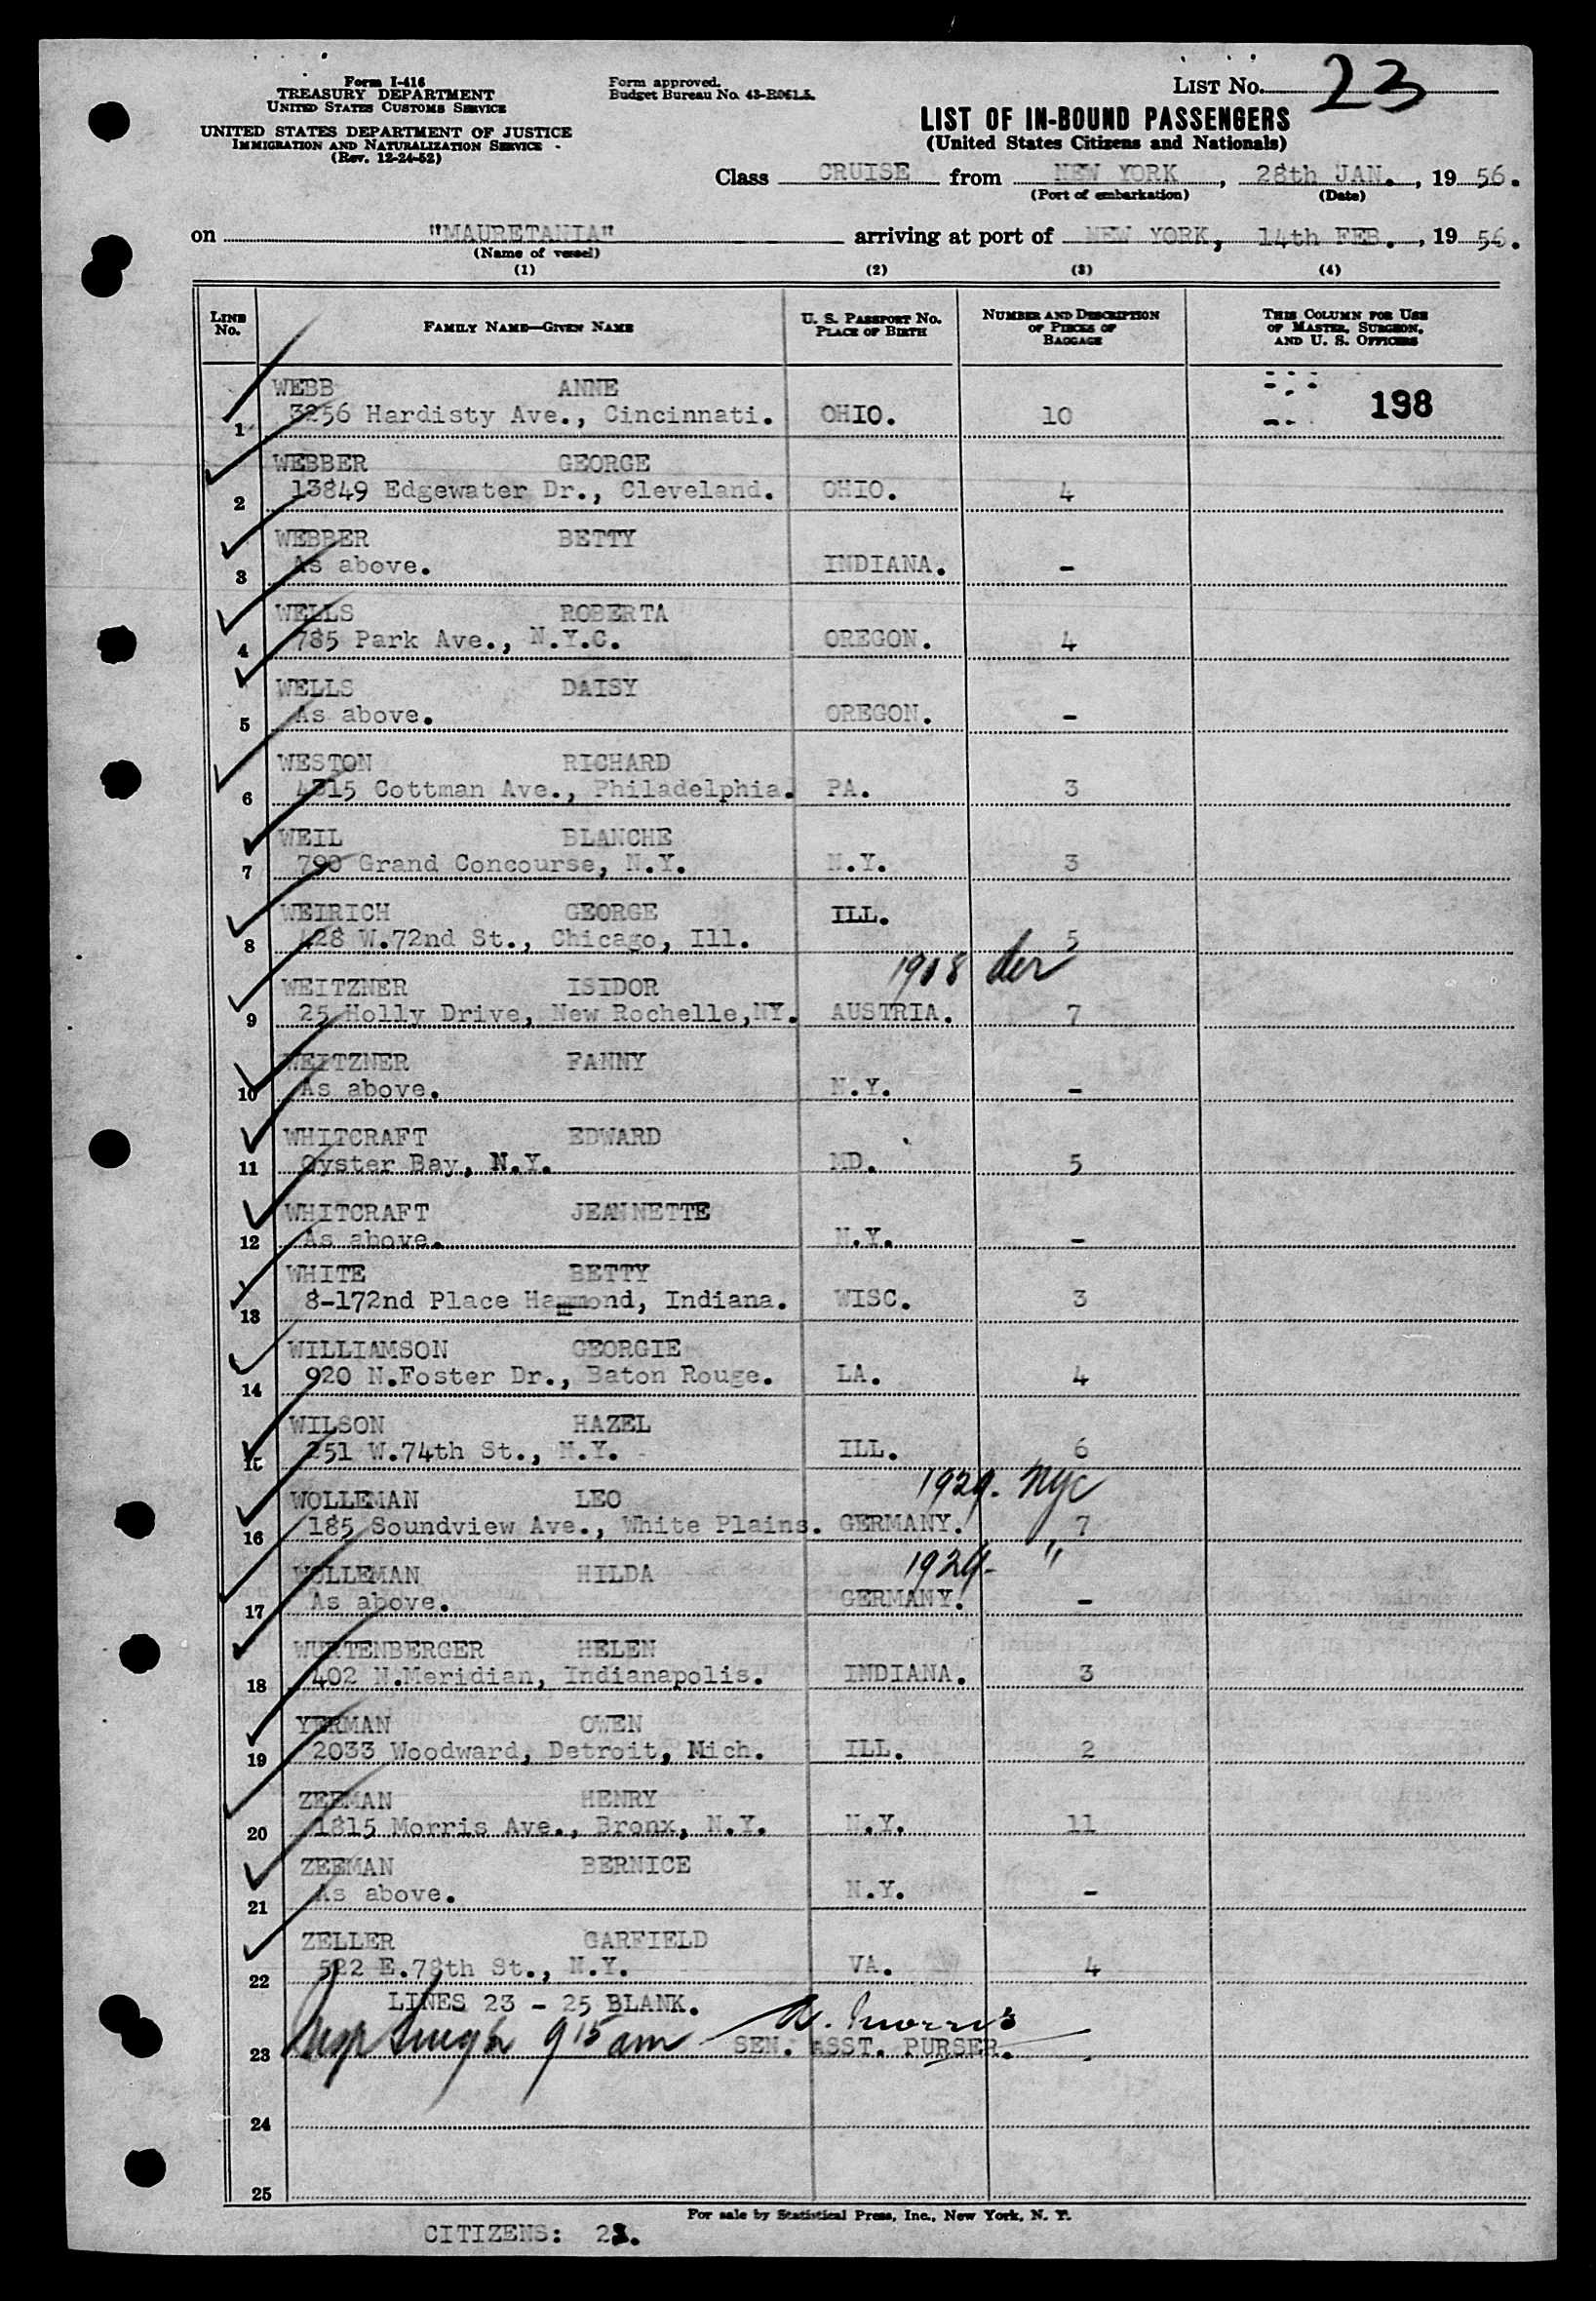 Form I-416
TREASURY DEPARTMENT
UNITED STATES CUSTOMS SERVICE
UNITED STATES DEPARTMENT OF JUSTICE
IMMIGRATION AND NATURALIZATION SERVICE
(Rev. 12-24-52)
Form approved.
Budget Bureau No. 43-R061.5.
LIST No. 23
LIST OF IN-BOUND PASSENGERS
(United States Citizens and Nationals)
Class CRUISE from NEW YORK, 28th JAN., 1956.
(Port of embarkation) (Date)
on "MAURETANIA" arriving at port of NEW YORK, 14th FEB., 1956.
(Name of vessel)
(1) (2) (3) (4)
LINE No. FAMILY NAME—GIVEN NAME U. S. PASSPORT No. PLACE OF BIRTH NUMBER AND DESCRIPTION OF PIECES OF BAGGAGE THIS COLUMN FOR USE OF MASTER, SURGEON, AND U. S. OFFICERS
WEBB ANNE 198
1 3256 Hardisty Ave., Cincinnati. OHIO. 10
WEBBER GEORGE
2 13849 Edgewater Dr., Cleveland. OHIO. 4
WEBBER BETTY
3 As above. INDIANA. -
WELLS ROBERTA
4 785 Park Ave., N.Y.C. OREGON. 4
WELLS DAISY
5 As above. OREGON. -
WESTON RICHARD
6 4315 Cottman Ave., Philadelphia. PA. 3
WEIL BLANCHE
7 790 Grand Concourse, N.Y. N.Y. 3
WEIRICH GEORGE ILL.
8 428 W.72nd St., Chicago, Ill. 5
1918
WEITZNER ISIDOR
9 25 Holly Drive, New Rochelle,NY. AUSTRIA. 7
WEITZNER FANNY
10 As above. N.Y. -
WHITCRAFT EDWARD
11 Oyster Bay, N.Y. MD. 5
WHITCRAFT JEANNETTE
12 As above. N.Y. -
WHITE BETTY
13 8-172nd Place Hammond, Indiana. WISC. 3
WILLIAMSON GEORGIE
14 920 N.Foster Dr., Baton Rouge. LA. 4
WILSON HAZEL
15 251 W.74th St., N.Y. ILL. 6
1929. NYC
WOLLEMAN LEO
16 185 Soundview Ave., White Plains. GERMANY. 7
1924- "
WOLLEMAN HILDA
17 As above. GERMANY. -
WURTENBERGER HELEN
18 402 N.Meridian, Indianapolis. INDIANA. 3
YERMAN OWEN
19 2033 Woodward, Detroit, Mich. ILL. 2
ZEEMAN HENRY
20 1815 Morris Ave., Bronx, N.Y. N.Y. 11
ZEEMAN BERNICE
21 As above. N.Y. -
ZELLER GARFIELD
22 522 E.78th St., N.Y. VA. 4
LINES 23 - 25 BLANK.
9 15 am
23 SEN. ASST. PURSER.
24
25
For sale by Statistical Press, Inc., New York, N. Y.
CITIZENS: